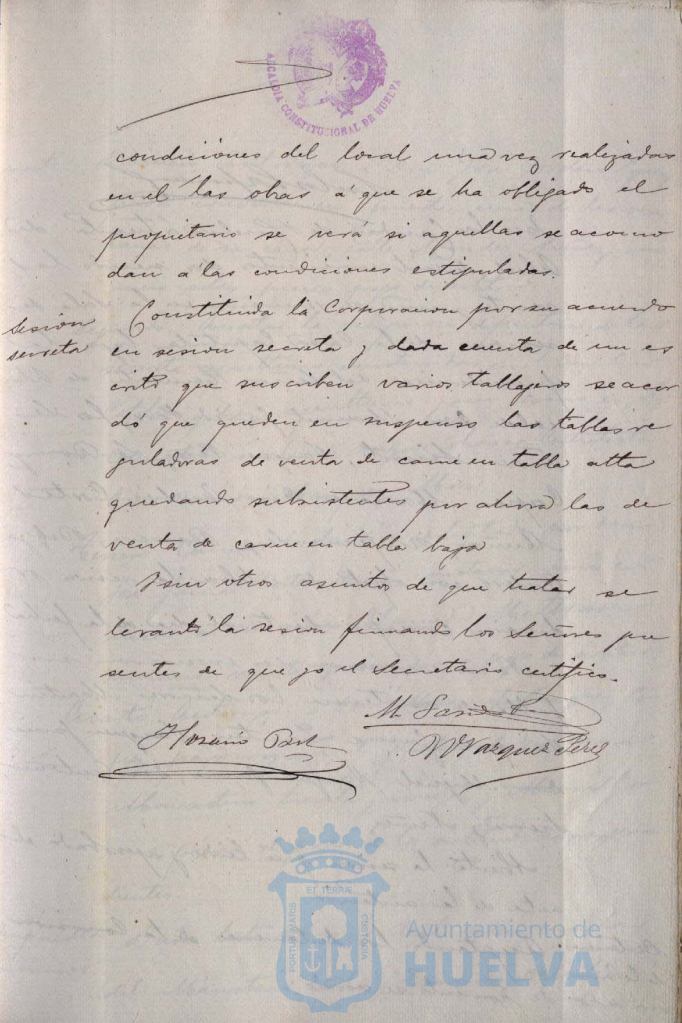 ALCALDIA CONSTITUCIONAL DE HUELVA
condiciones del local una vez realizadas
en él las obras á que se ha obligado el
propietario se verá si aquellas se acomo
dan á las condiciones estipuladas.
Sesion
secreta
Constituida la Corporacion por su acuerdo
en sesion secreta y dada cuenta de un es
crito que suscriben varios tablajeros se acor
dó que queden en suspenso las tablas re
guladoras de venta de carne en tabla alta
quedando subsistentes por ahora las de
venta de carne en tabla baja
Y sin otros asuntos de que tratar se
levantó la sesion firmando los Señores pre
sentes de que yo el Secretario certifico.
M.
Horacio
Vazquez Perez
ET TERRE
PORTUS MARIS
CUSTODIA
Ayuntamiento de
HUELVA